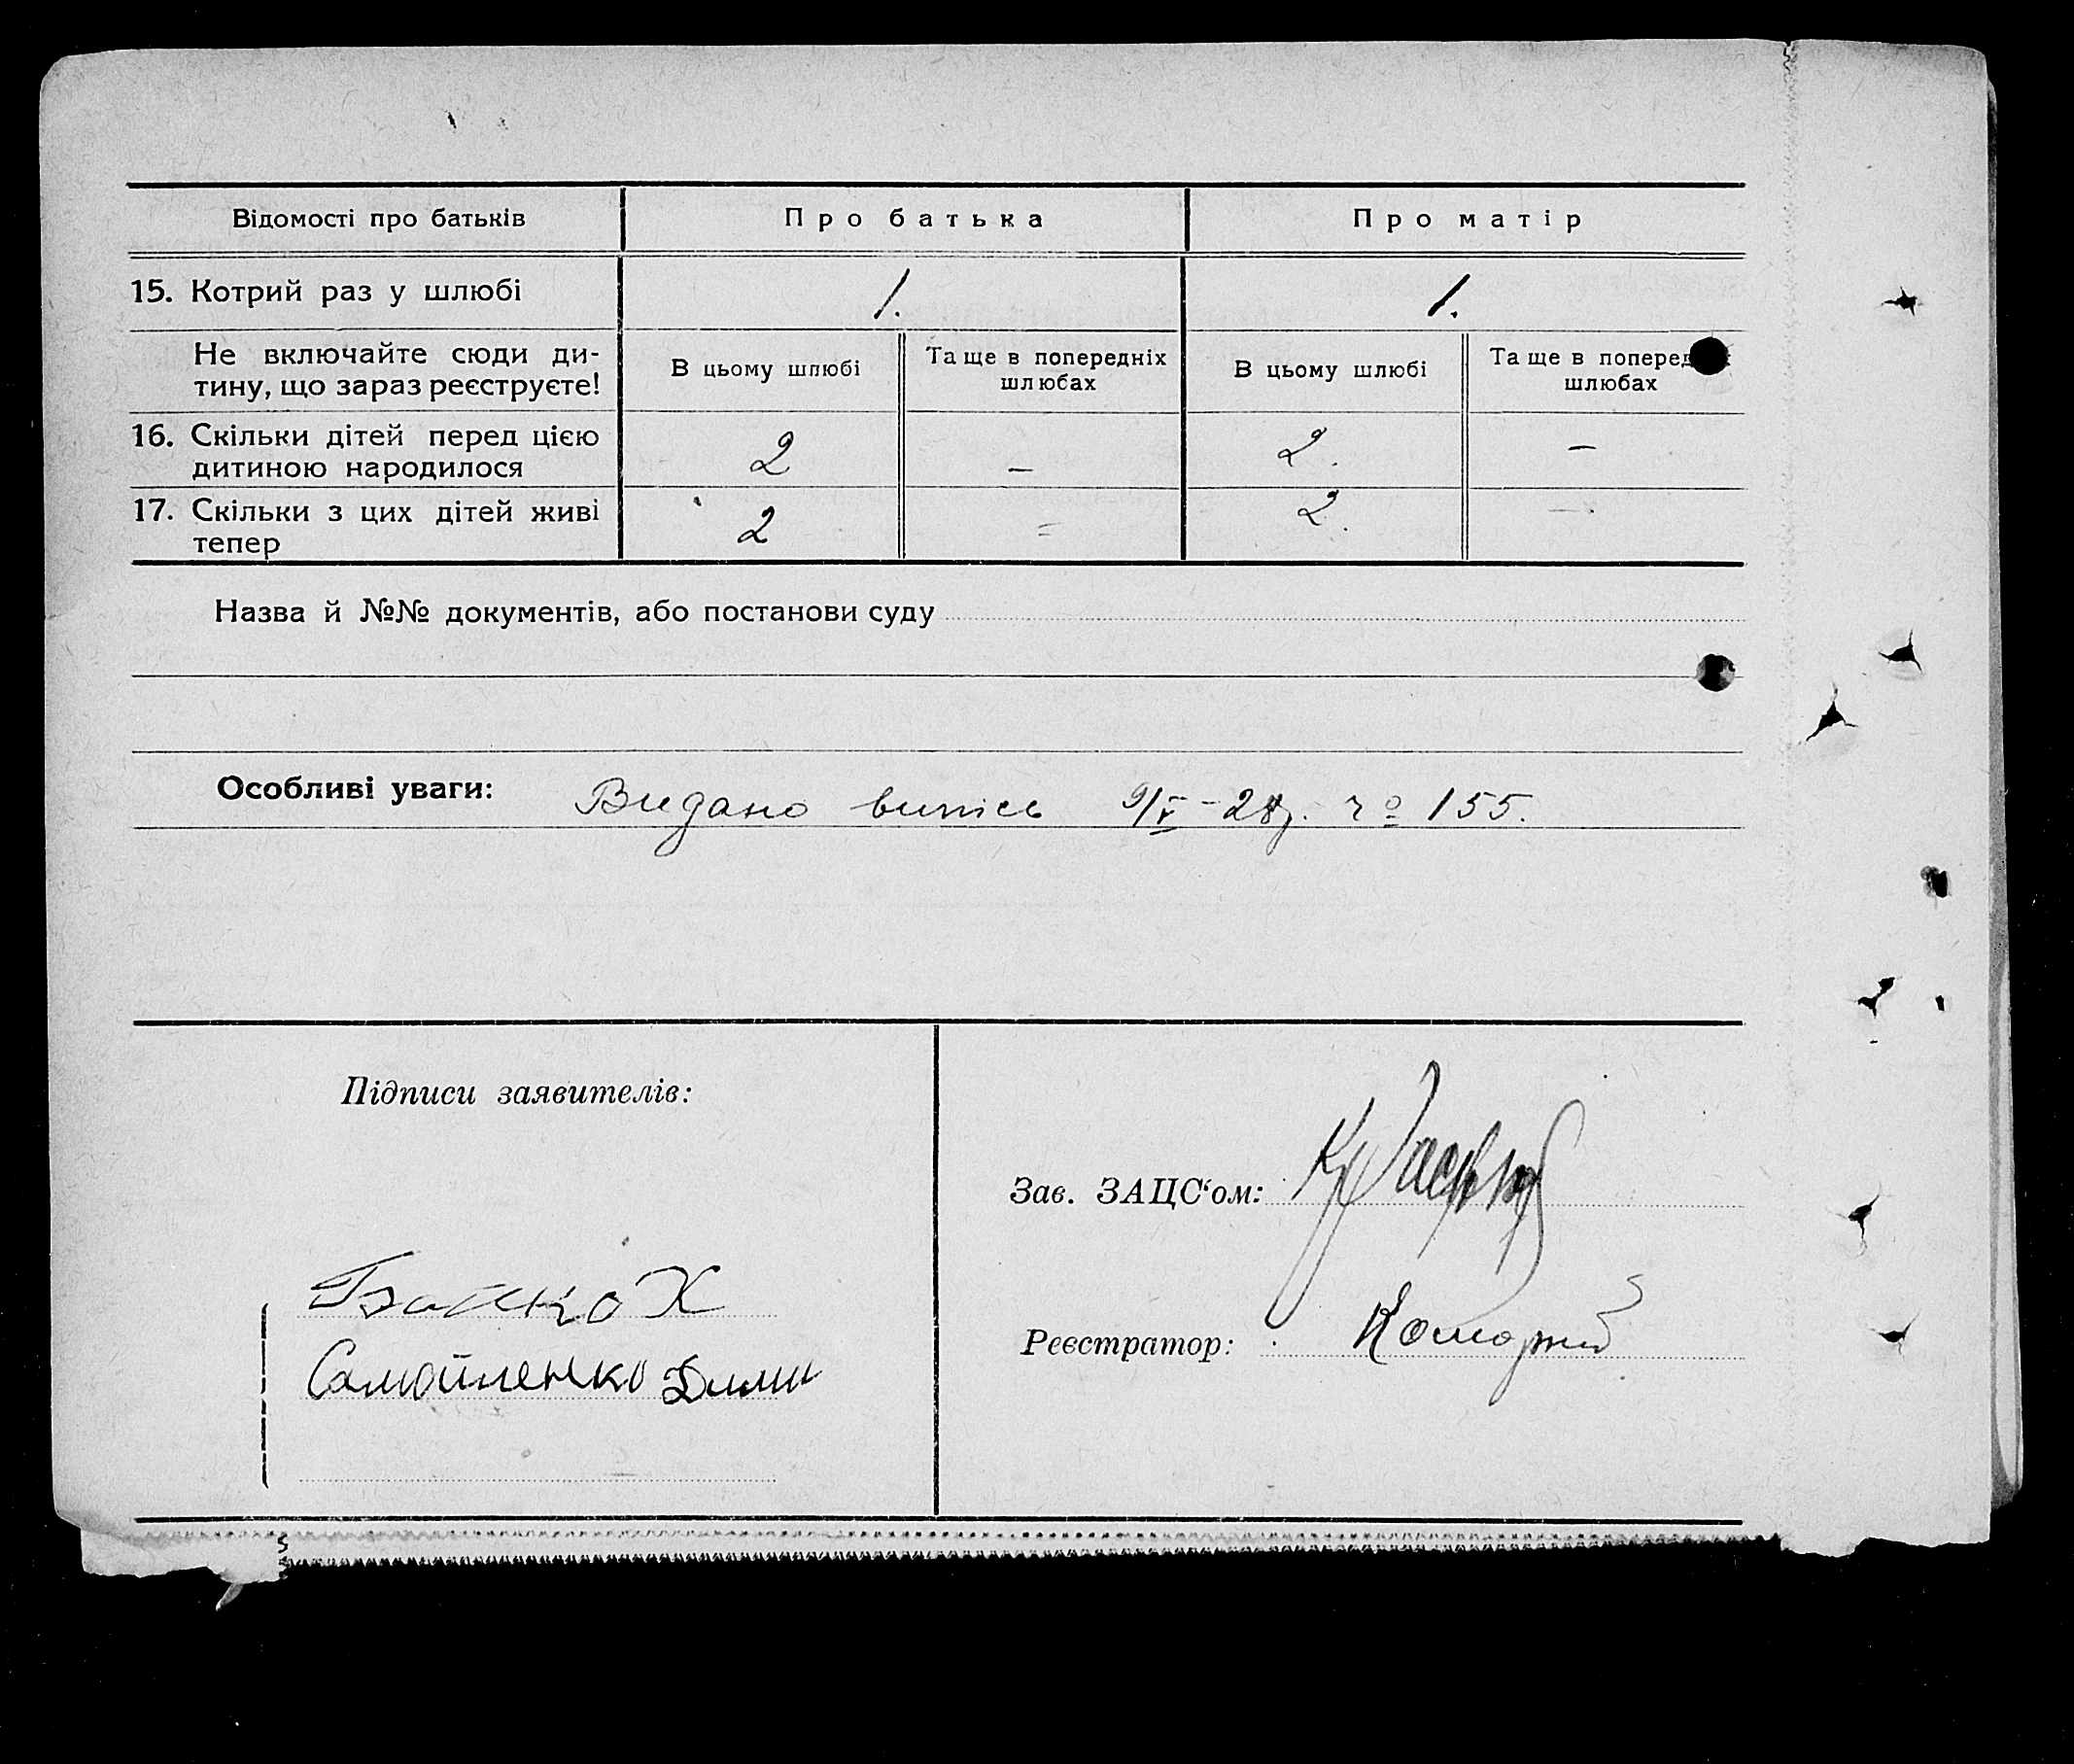 Відомості про батьків Про батька Про матір
15. Котрий раз у шлюбі 1. 1.
Не включайте сюди ди-
тину, що зараз реєструєте!
В цьому шлюбі
Та ще в попередніх
шлюбах
В цьому шлюбі
Та ще в поперед
шлюбах
16. Скільки дітей перед цією
дитиною народилося
2 – 2. –
17. Скільки з цих дітей живі
тепер
2 = 2. –
Назва й №№ документів, або постанови суду
Особливі уваги: Видано випись 9/V – 28 р. 155.
Підписи заявителів:
Зав. ЗАЦС‘ом:
Х
Самойленко
Реєстратор: